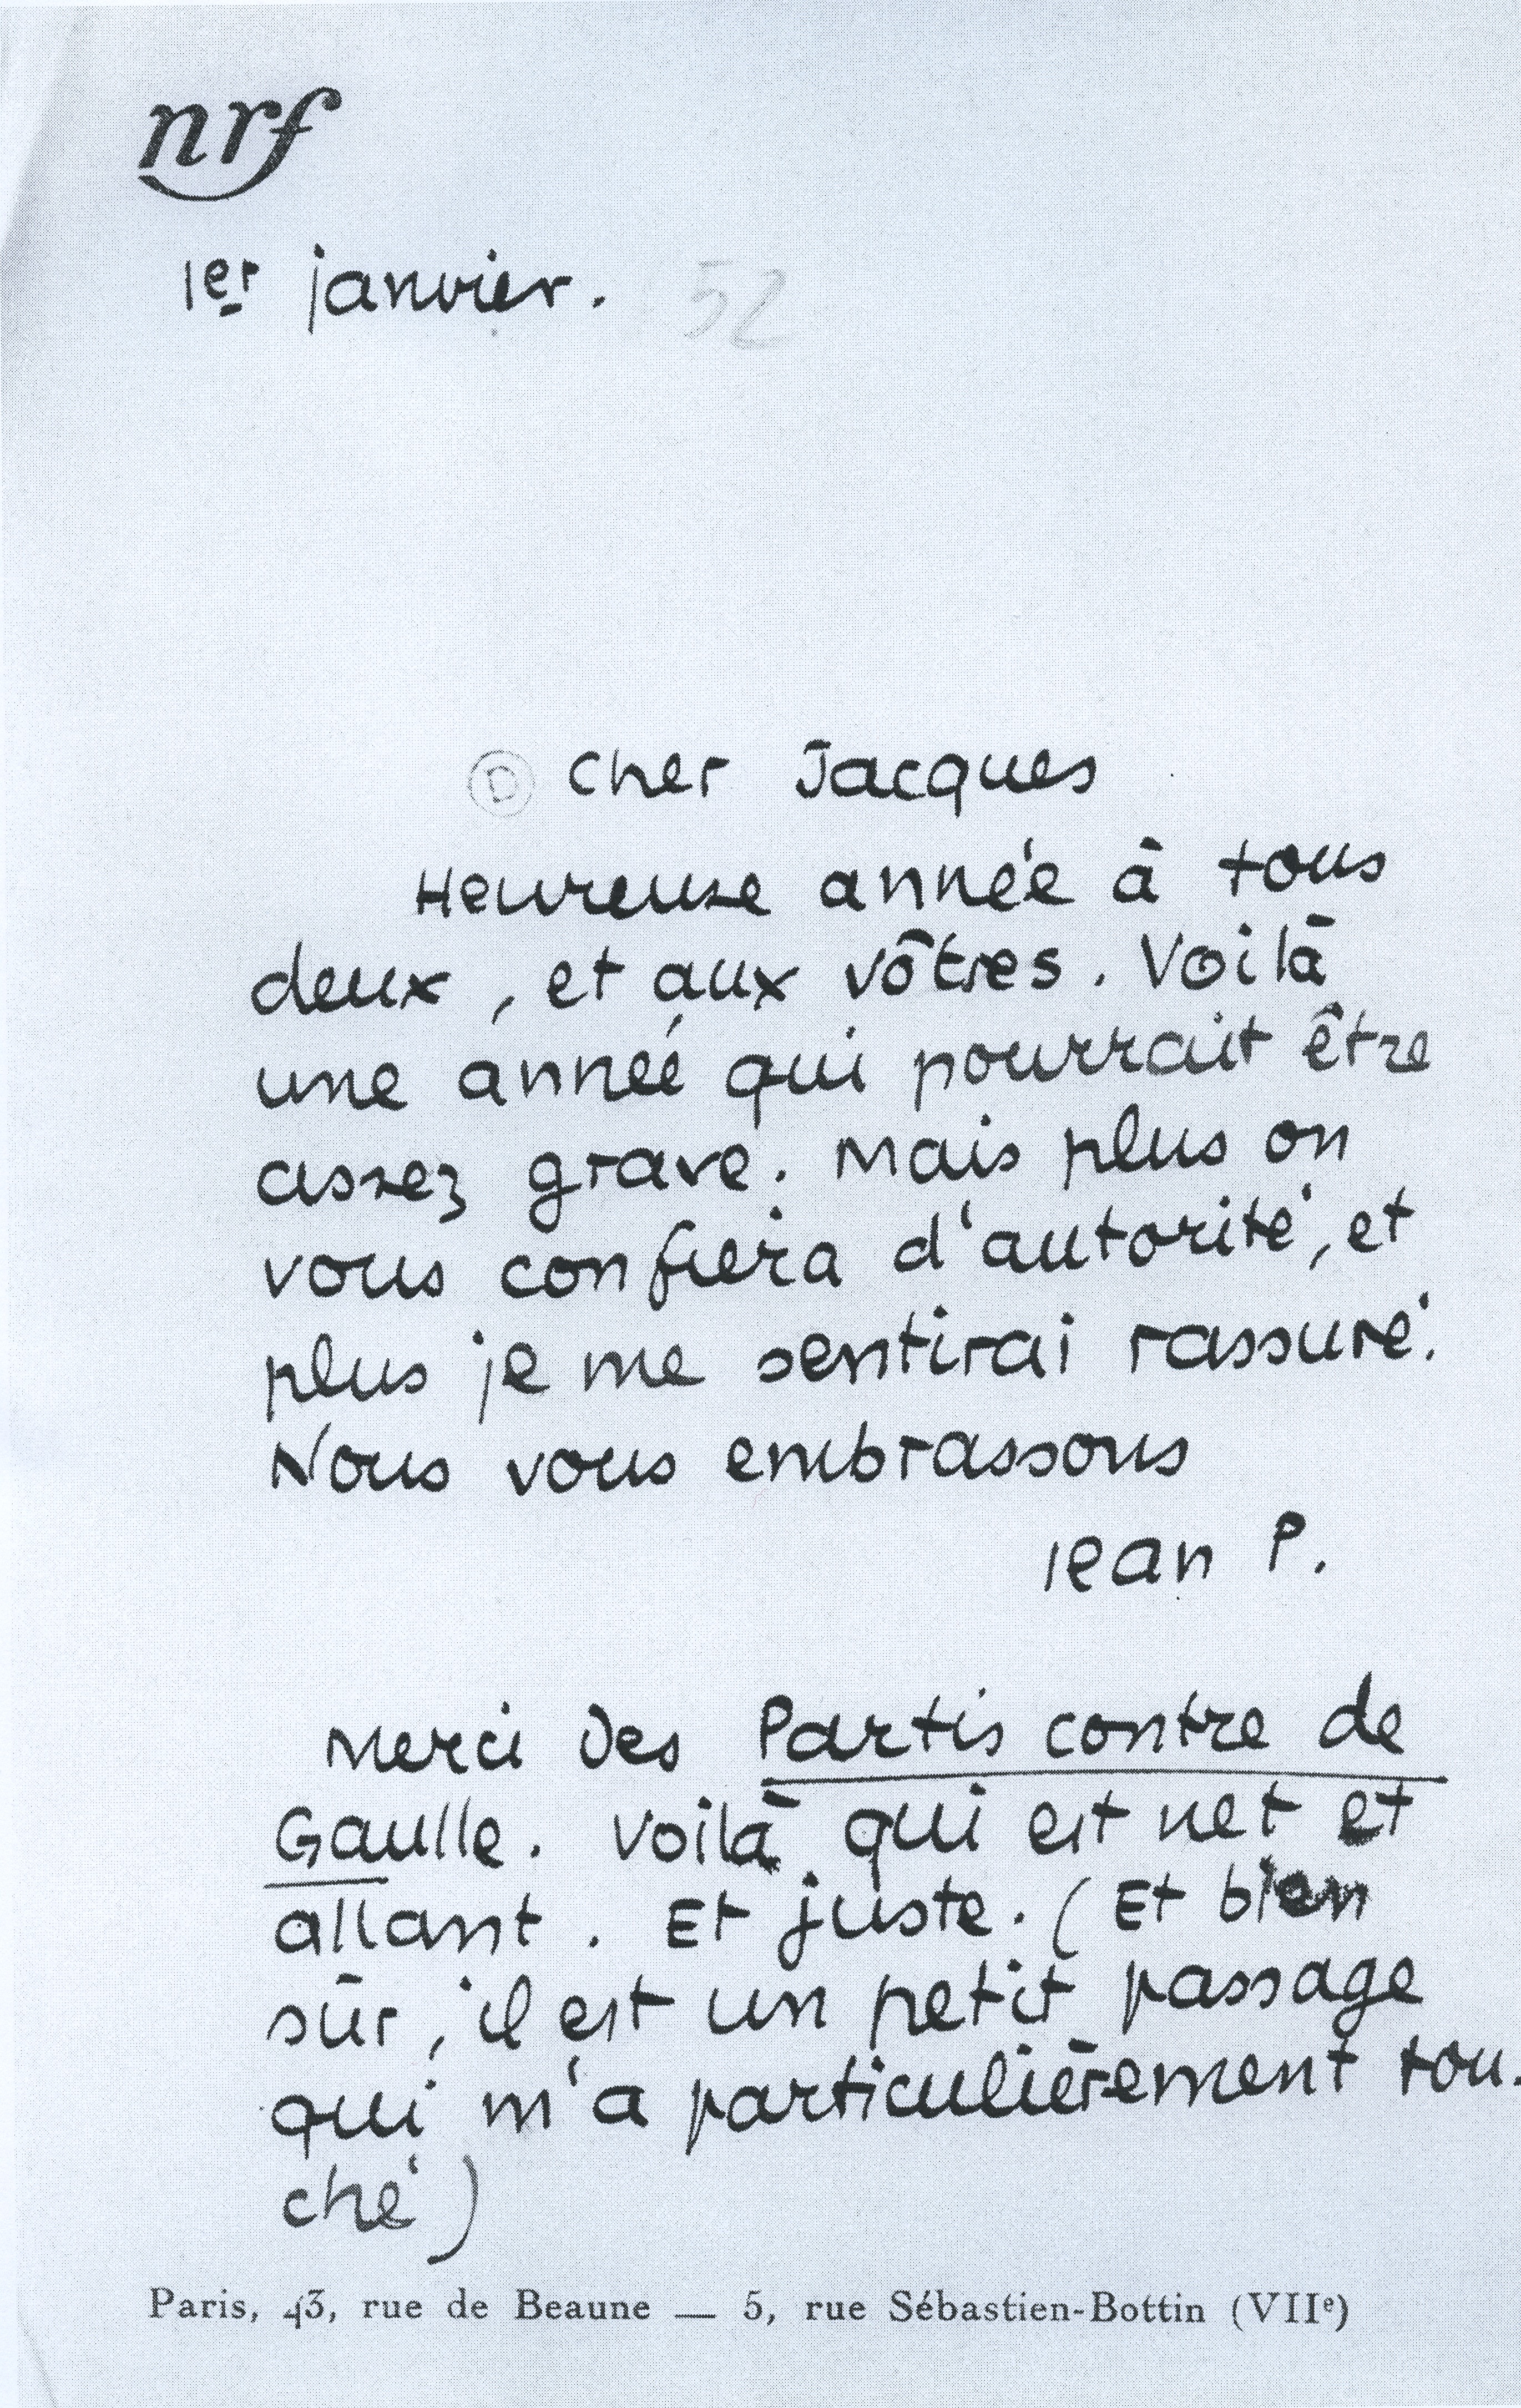 nrf
1er janvier. 52
D cher Jacques
Heureuse année à tous
deux, et aux vôtres. Voilà
une année qui pourrait être
assez grave. Mais plus on
vous confiera d'autorité, et
plus je me sentirai rassuré.
Nous vous embrassons
Jean P.
Merci des Partis contre de
Gaulle. Voilà qui est net et
allant. Et juste. (Et bien
sûr, il est un petit passage
qui m'a particulièrement tou-
ché)
Paris, 43, rue de Beaune — 5, rue Sébastien-Bottin (VIIe)